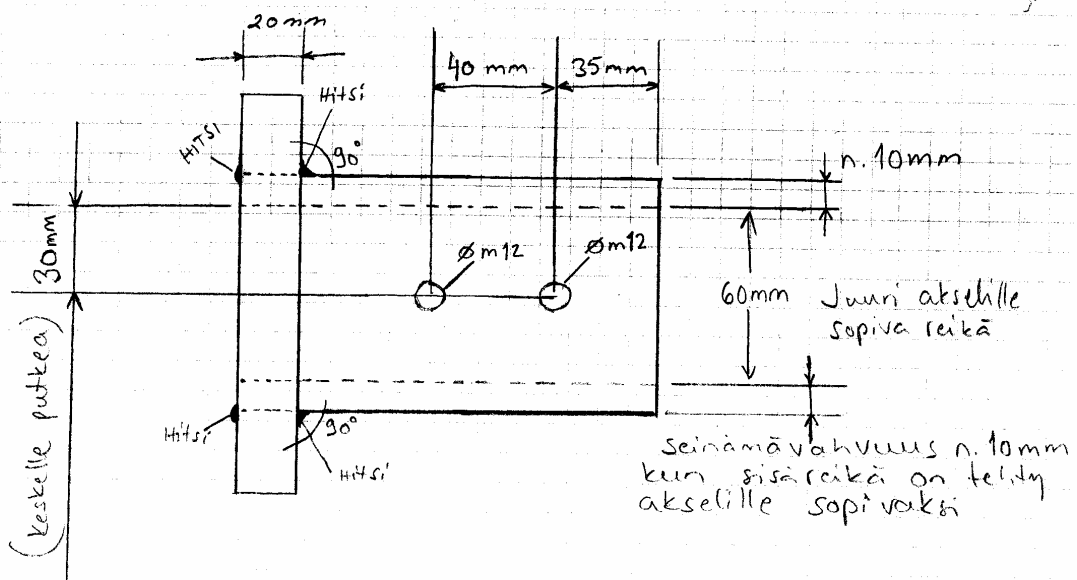 20mm
40 mm
35mm
Hitsi
Hitsi
90°
n. 10mm
30mm
Ø m12
Ø m12
60mm
Juuri akselille
sopiva reikä
(keskelle putkea)
Hitsi
90°
Hitsi
seinämävahvuus n. 10mm
kun sisäreikä on tehty
akselille sopivaksi